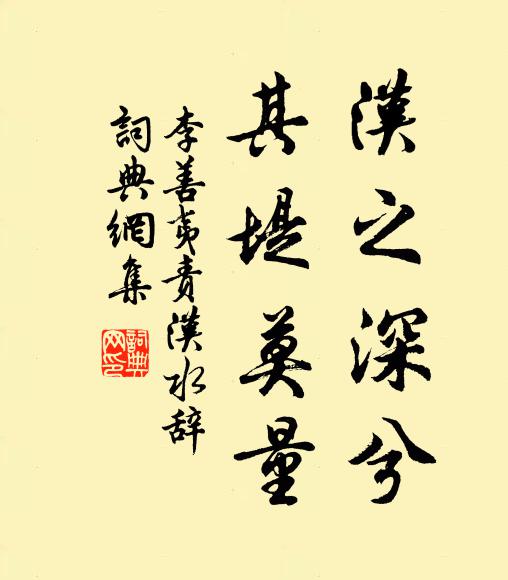 漢之深兮
其堤莫量
李善夷责漢水辞
詞典網集
詞典網印